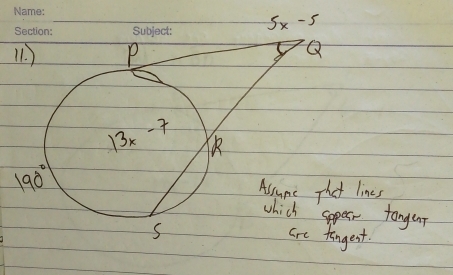 Name:
5x - 5
Section: Subject:
11.)
P
Q
13x - 7
R
190°
S
Assume That lines
which appear tangent
are tangent.